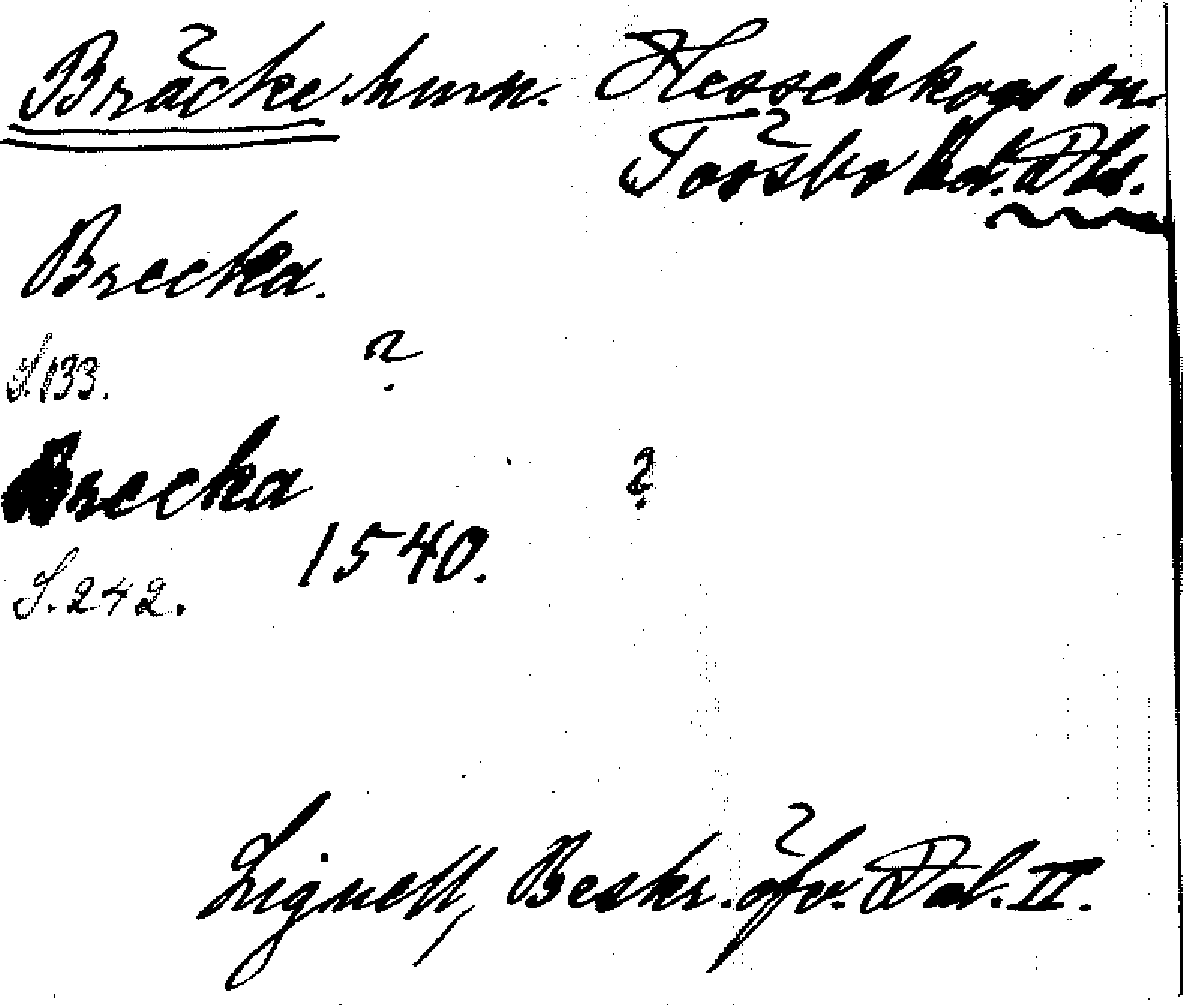 Bräcke hmn. Hesselskogs sn.
Tössbo hd. Dls.
Brecka.
S. 133. ?
Brecka ?
1540.
S. 242.
Lignell, Beskr. öfv. Dal. II.